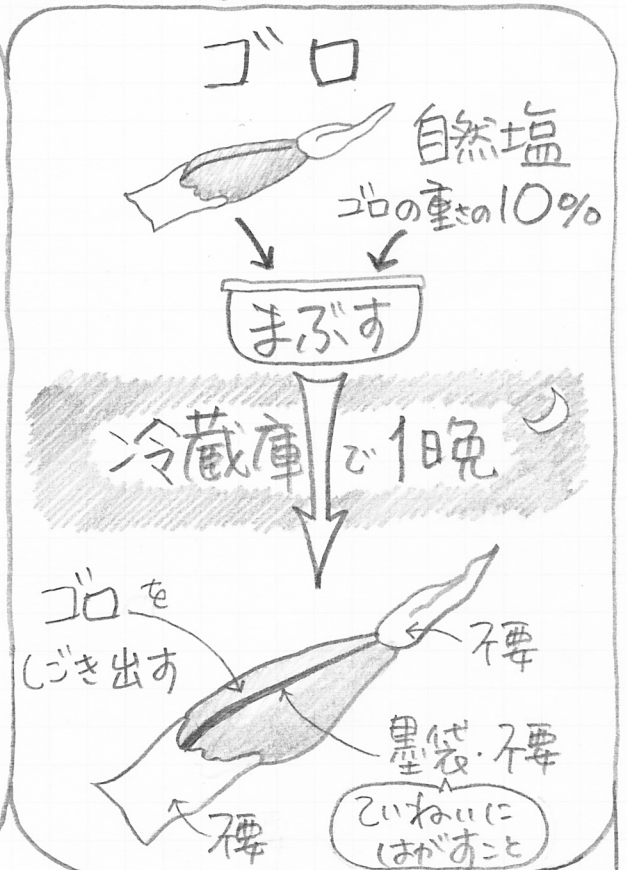 ゴロ
自然塩
ゴロの重さの10%
まぶす
冷蔵庫で1晩
ゴロを
しごき出す
不要
墨袋・不要
ていねいに
はがすこと
不要